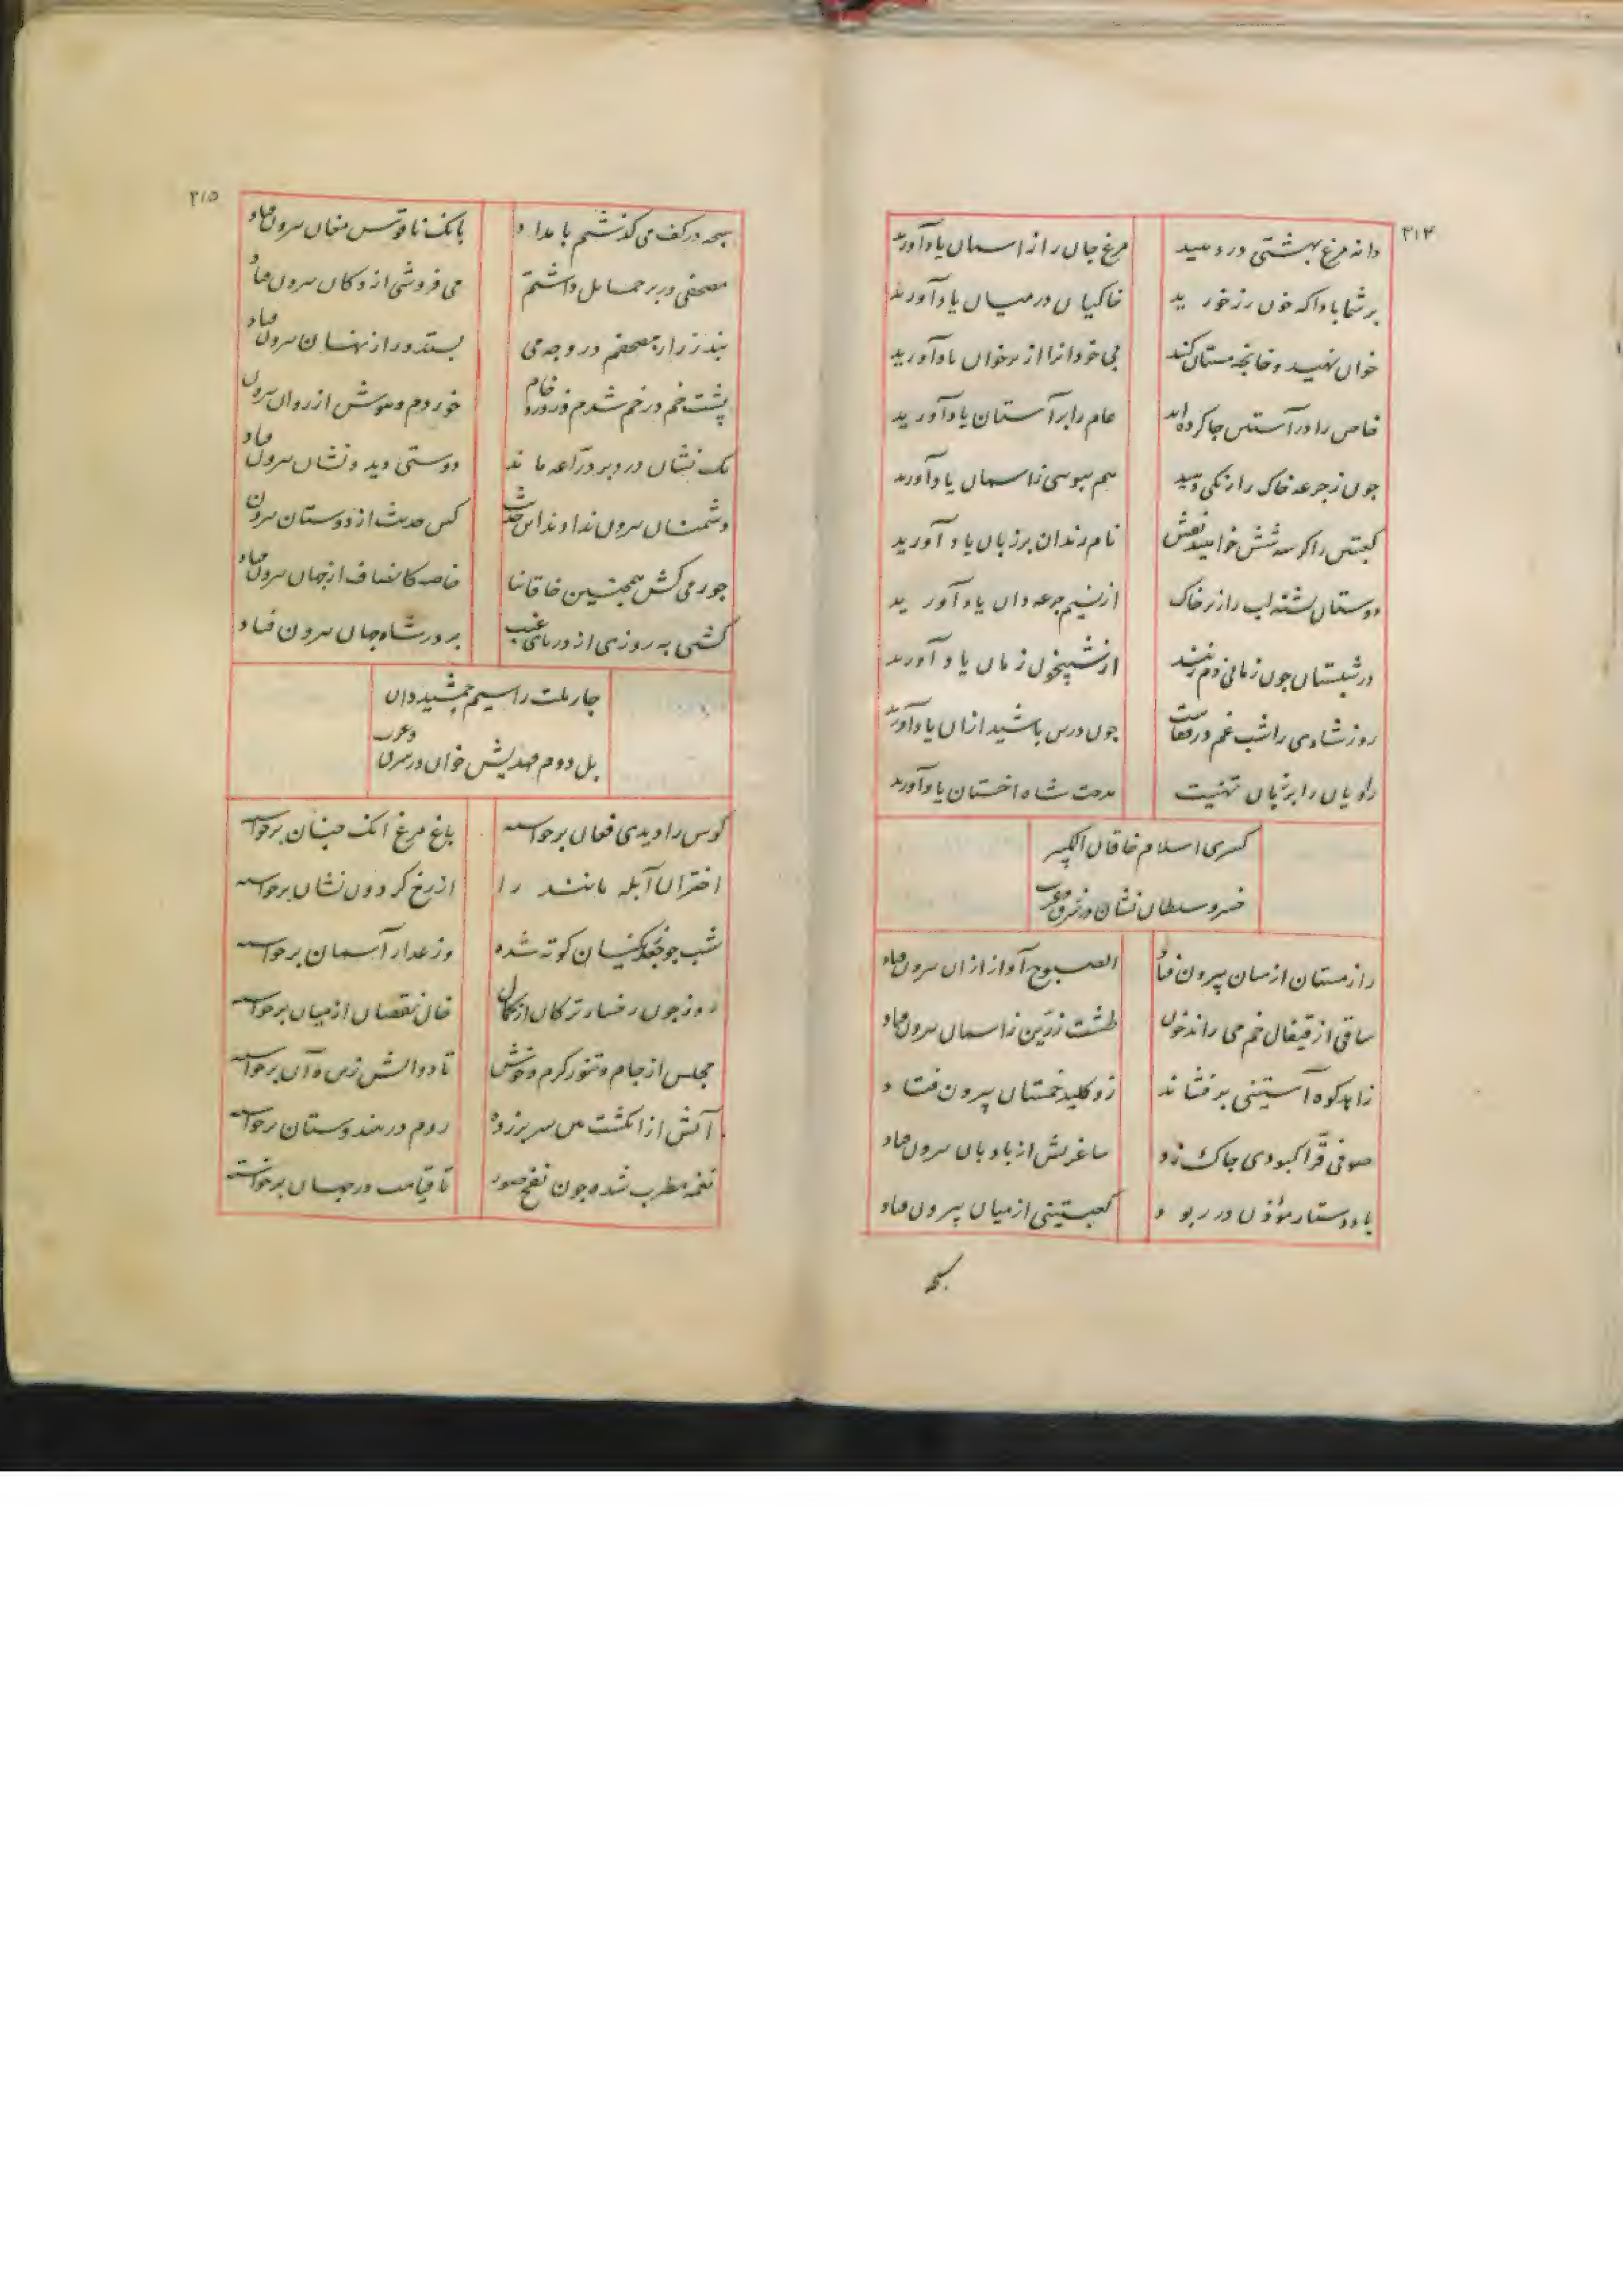 ۲۱۴
دانه مرغ بهشتی در دهید مرغ جان را از آسمان یاد آورید
بر شما بادا که خون رز خورید خاکیان در میان یاد آورید
خوان نهید و خانچه مستان کنند بی خودانرا از سر خوان یاد آورید
خاص را در آستین جا کرده‌اید عام را بر آستان یاد آورید
چون ز جرعه خاک را رنگی دهید هم ببوسی زاسمان یاد آورید
کعبتین را گر سه شش خواهید نقش نام رندان بر زبان یاد آورید
دوستان تشنه لب را زیر خاک از نسیم جرعه دان یاد آورید
در شبستان چون زمانی دم زنید از شبیخون زمان یاد آورید
روز شادی را شب غم در قفاست چون درین باشید ازان یاد آورید
راویان را بر زبان تهنیت مدحت شاه اخستان یاد آورید
کسری اسلام خاقان الکبیر
خسرو سلطان نشان در شرق و غرب
راز مستان از میان بیرون فتاد الصبوح آواز ازان بیرون فتاد
ساقی از قیفال خم می راند خون طشت زرین زاسمان بیرون فتاد
زاهد کوه آستینی برفشاند زو کلید خمستان بیرون فتاد
صوفی قرا کبودی چاک زد ساغرش از بادبان بیرون فتاد
باد دستار مؤذن در ربود کعبتینی از میان بیرون فتاد
سبحه
۲۱۵
سبحه در کف می گذشتم بامداد بانک ناقوس مغان بیرون فتاد
مصحفی در بر حمایل داشتم می فروشی از دکان بیرون فتاد
بند زرار مصحفم در وجه می بستد و راز نهان بیرون فتاد
پشت خم در خم شدم وز درد خام خوردم و هوش از روان بیرون فتاد
یک نشان درد بر دراعه ماند دوستی دید و نشان بیرون فتاد
دشمنان بیرون ندادند این حدیث کین حدیث از دوستان بیرون فتاد
جور می کش همچنین خاقانیا خاصه کانصاف از جهان بیرون فتاد
کشتی به روزی از دریای غیب بر در شاه جان بیرون فتاد
چار ملت را سیم جمشید دان
بل دوم مهدیش خوان در شرق و غرب
کوس را دیدی فغان برخواسته باغ مرغ انک چنان برخواسته
اختران آبله مانند را از رخ گردون نشان برخواسته
شب چو جعد زنگیان کوته شده وز عذار آسمان برخواسته
روز چون رخسار ترکان از کمال خال نقصان از میان برخواسته
مجلس از جام و تنور گرم و خوش تا دو آتش زین و آن برخواسته
آتش از انگشت بین سر برزده روم در هندوستان برخواسته
نغمه مطرب شده چون نفخ صور تا قیامت در جهان برخواسته